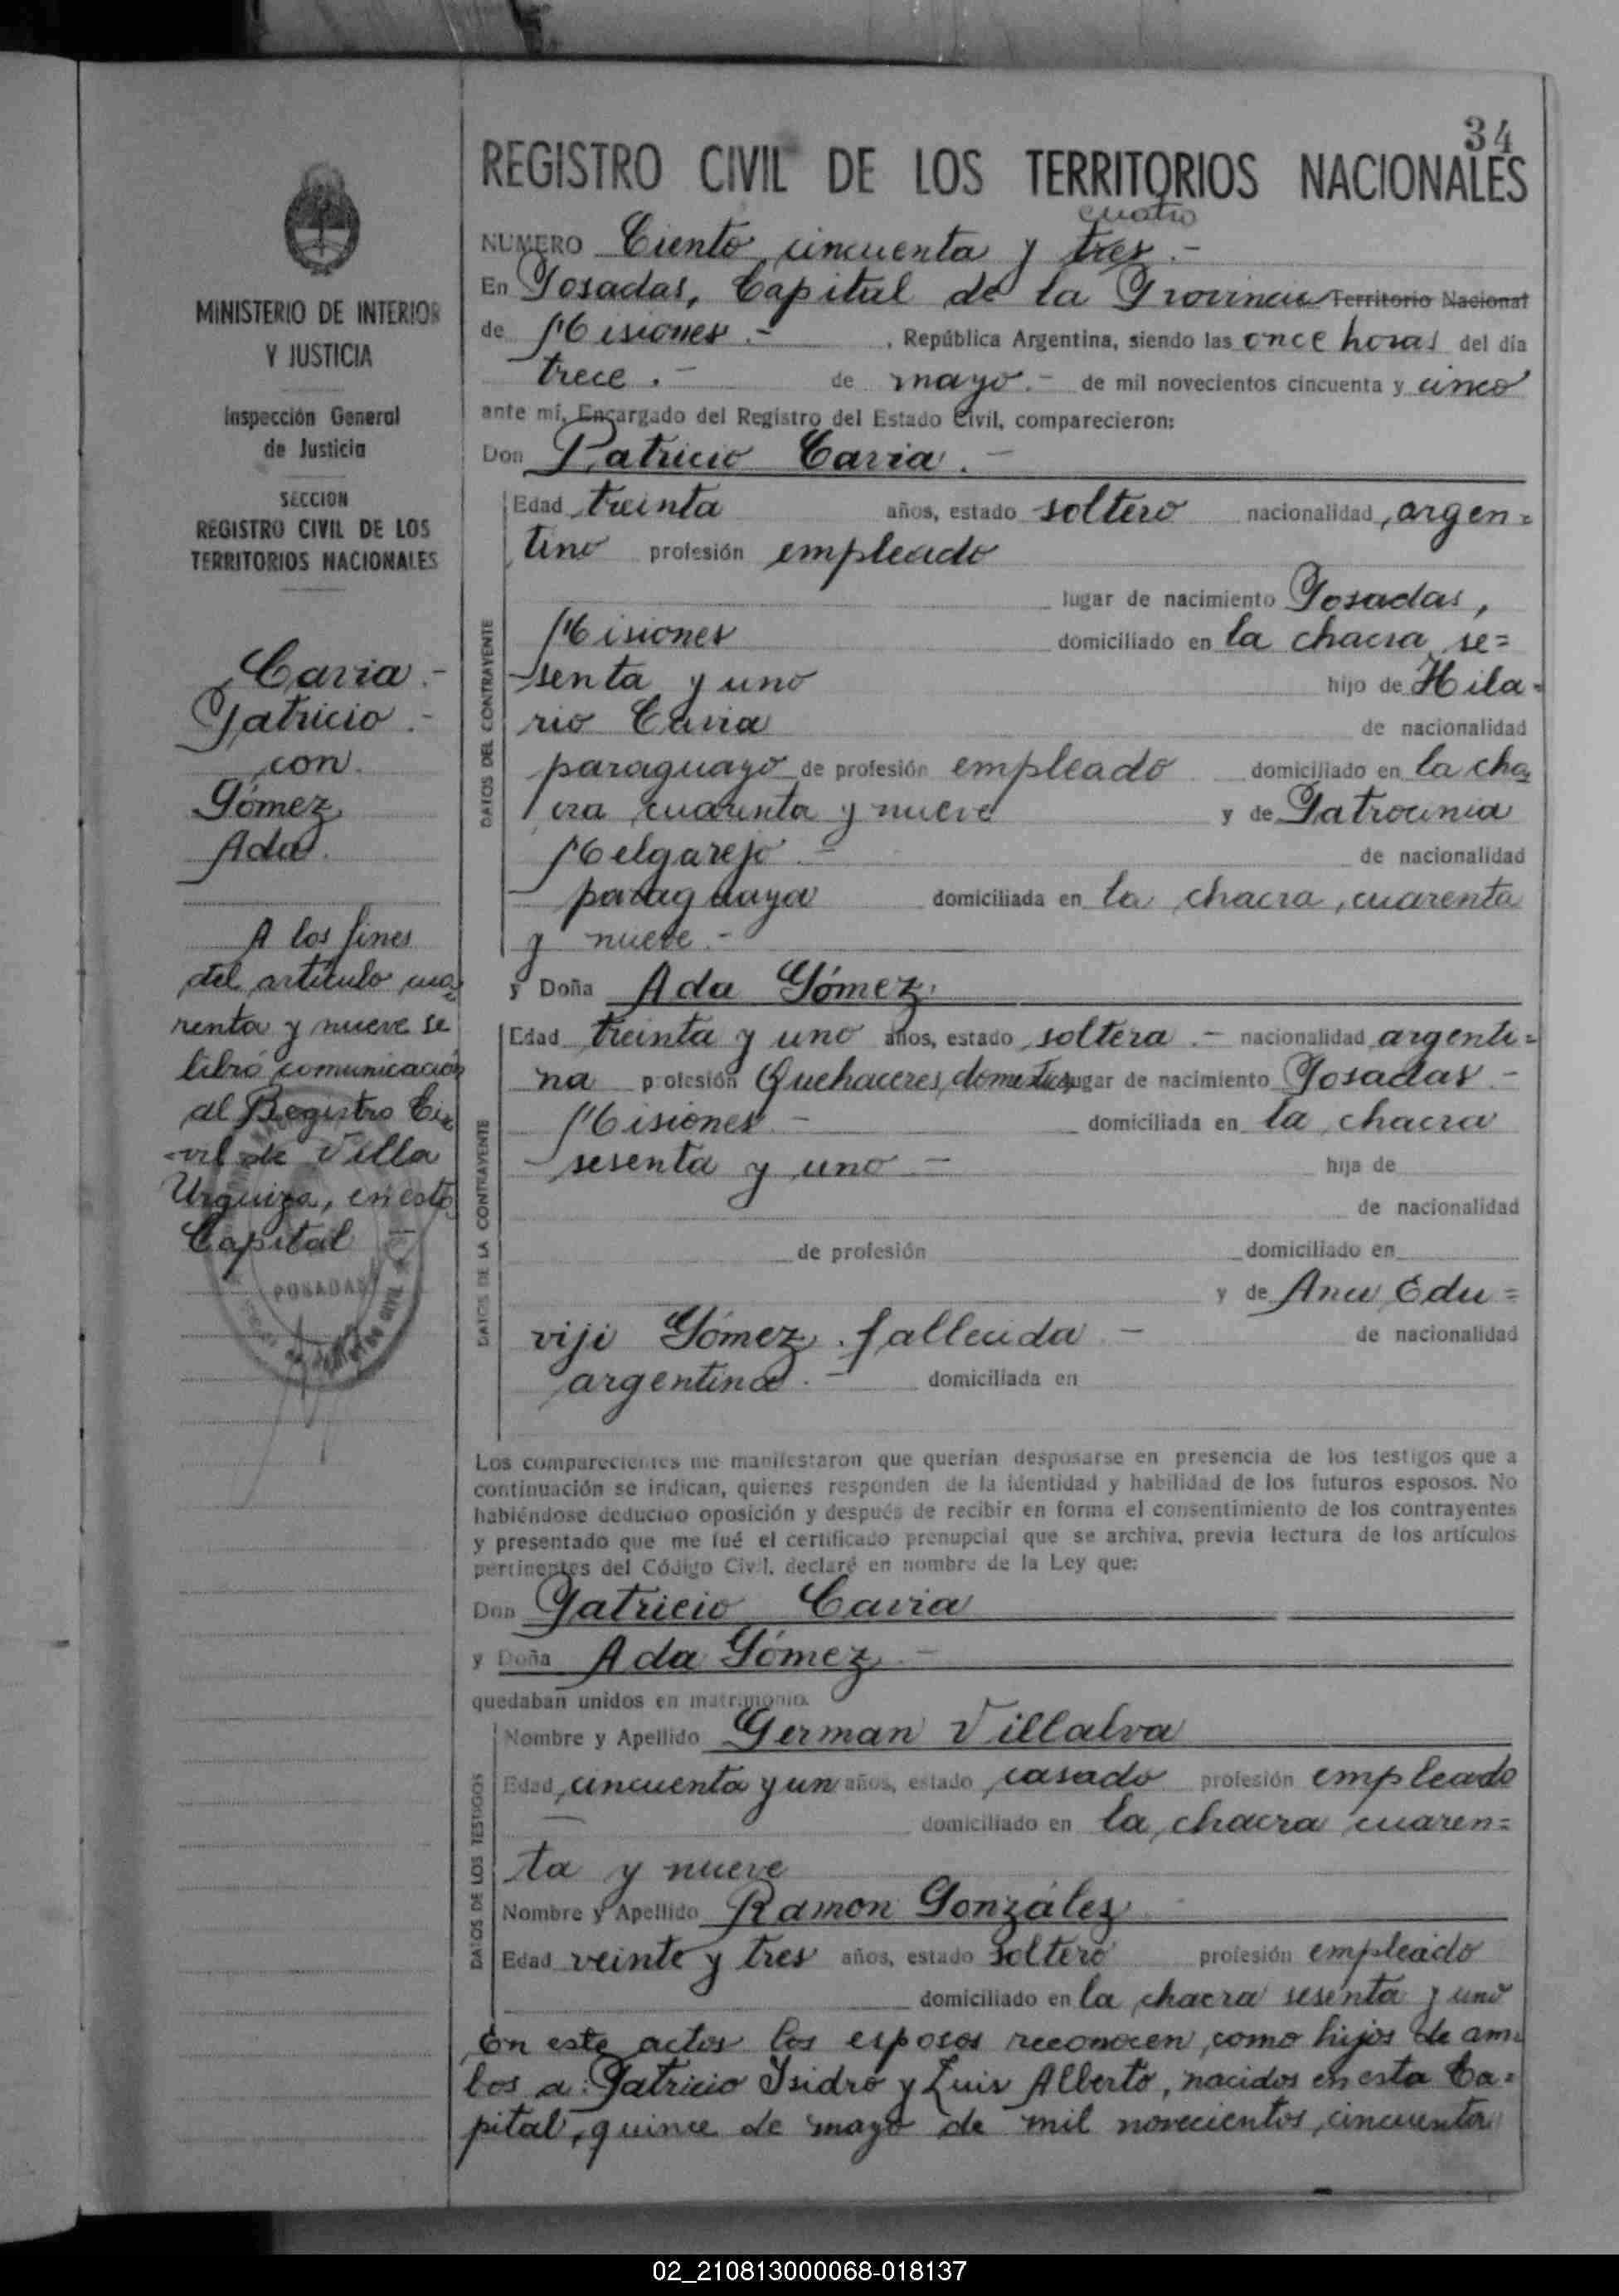 34
REGISTRO CIVIL DE LOS TERRITORIOS NACIONALES
cuatro
NUMERO Ciento cincuenta y tres.-
En Posadas, Capital de la Provincia Territorio Nacional
de Misiones.- , República Argentina, siendo las once horas del día
trece.- de mayo.- de mil novecientos cincuenta y cinco
ante mí, Encargado del Registro del Estado Civil, comparecieron:
Don Patricio Cavia.-
Edad treinta años, estado soltero nacionalidad argen=
tino profesión empleado
lugar de nacimiento Posadas,
Misiones domiciliado en la chacra se=
senta y uno hijo de Hila=
rio Cavia de nacionalidad
paraguayo de profesión empleado domiciliado en la cha
cra cuarenta y nueve y de Patrocinia
Melgarejo.- de nacionalidad
paraguaya domiciliada en la chacra cuarenta
y nueve.-
y Doña Ada Gómez.
Edad treinta y uno años, estado soltera.- nacionalidad argenti=
na profesión Quehaceres domesticos lugar de nacimiento Posadas-
Misiones- domiciliada en la chacra
sesenta y uno- hija de
de nacionalidad
de profesión domiciliado en
y de Ana Edu=
viji Gómez. fallecida- de nacionalidad
argentina.- domiciliada en
DATOS DEL CONTRAYENTE
DATOS DE LA CONTRAYENTE
Los comparecientes me manifestaron que querían desposarse en presencia de los testigos que a
continuación se indican, quienes responden de la identidad y habilidad de los futuros esposos. No
habiéndose deducido oposición y después de recibir en forma el consentimiento de los contrayentes
y presentado que me fué el certificado prenupcial que se archiva, previa lectura de los artículos
pertinentes del Código Civil, declaré en nombre de la Ley que:
Don Patricio Cavia
y Doña Ada Gómez.-
quedaban unidos en matrimonio.
Nombre y Apellido German Villalva
Edad cincuenta y un años, estado casado profesión empleado
domiciliado en la chacra cuaren=
ta y nueve
Nombre y Apellido Ramon Gonzáles
Edad veinte y tres años, estado soltero profesión empleado
domiciliado en la chacra sesenta y uno
DATOS DE LOS TESTIGOS
En este actos los esposos reconocen como hijos de am=
bos a: Patricio Ysidro y Luis Alberto, nacidos en esta Ca=
pital, quince de mayo de mil novecientos cincuenta
MINISTERIO DE INTERIOR
Y JUSTICIA
Inspección General
de Justicia
SECCION
REGISTRO CIVIL DE LOS
TERRITORIOS NACIONALES
Cavia.-
Patricio.-
con
Gómez
Ada.
A los fines
del artículo cua=
renta y nueve se
libró comunicación
al Registro Ci=
vil de Villa
Urquiza, en esta
Capital.-
POSADAS
02_210813000068-018137